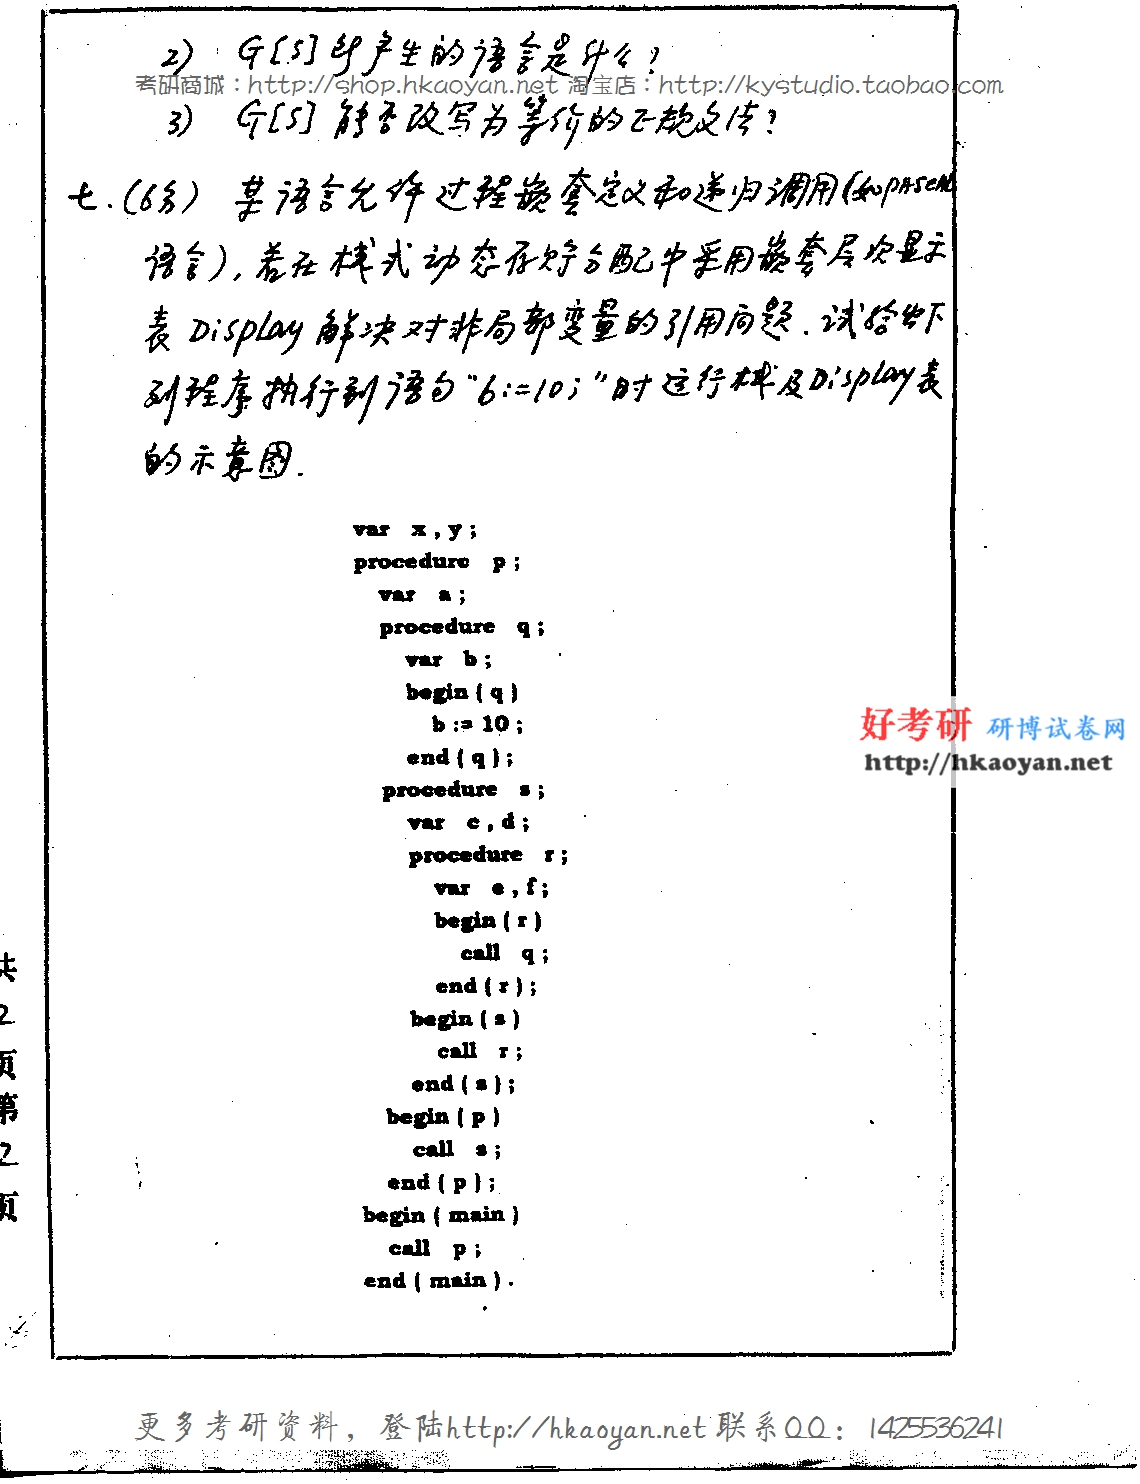 2) G[S]所产生的语言是什么?
考研商城:http://shop.hkaoyan.net 淘宝店:http://kystudio.taobao.com
3) G[S]能否改写为等价的正规文法?
七.(6分) 某语言允许过程嵌套定义和递归调用(如PASCAL
语言),若在栈式动态存贮分配中采用嵌套层次显示
表Display解决对非局部变量的引用问题.试给出下
列程序执行到语句"b:=10;"时运行栈及Display表
的示意图.
var x,y;
procedure p;
var a;
procedure q;
var b;
begin(q)
b:=10;
end(q);
procedure s;
var c,d;
procedure r;
var e,f;
begin(r)
call q;
end(r);
begin(s)
call r;
end(s);
begin(p)
call s;
end(p);
begin(main)
call p;
end(main).
好考研 研博试卷网
http://hkaoyan.net
共2页第2页
更多考研资料,登陆http://hkaoyan.net 联系QQ:1425536241